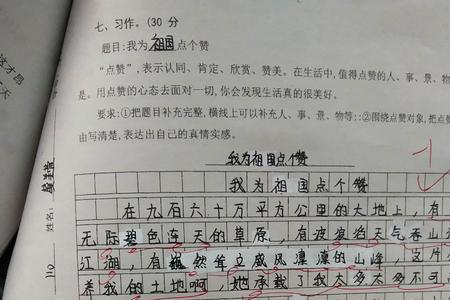 七、习作。(30 分
题目:我为祖国点个赞
“点赞”,表示认同、肯定、欣赏、赞美。在生活中,值得点赞的人、事、景、物
是。用点赞的心态去面对一切,你会发现生活真的很美好。
要求:①把题目补充完整,横线上可以补充人、事、景、物等;②围绕点赞对象,把点赞
由写清楚,表达出自己的真情实感。
我为祖国点个赞
我为祖国点个赞
在九百六十万平方公里的大地上,有
无际碧色连天的草原,有波浪滔天气吞山
江湖,有巍然耸立威风凛凛的山峰,这片
养我的土地啊,她承载了我太多太多不可
这才昂
天
姓名: